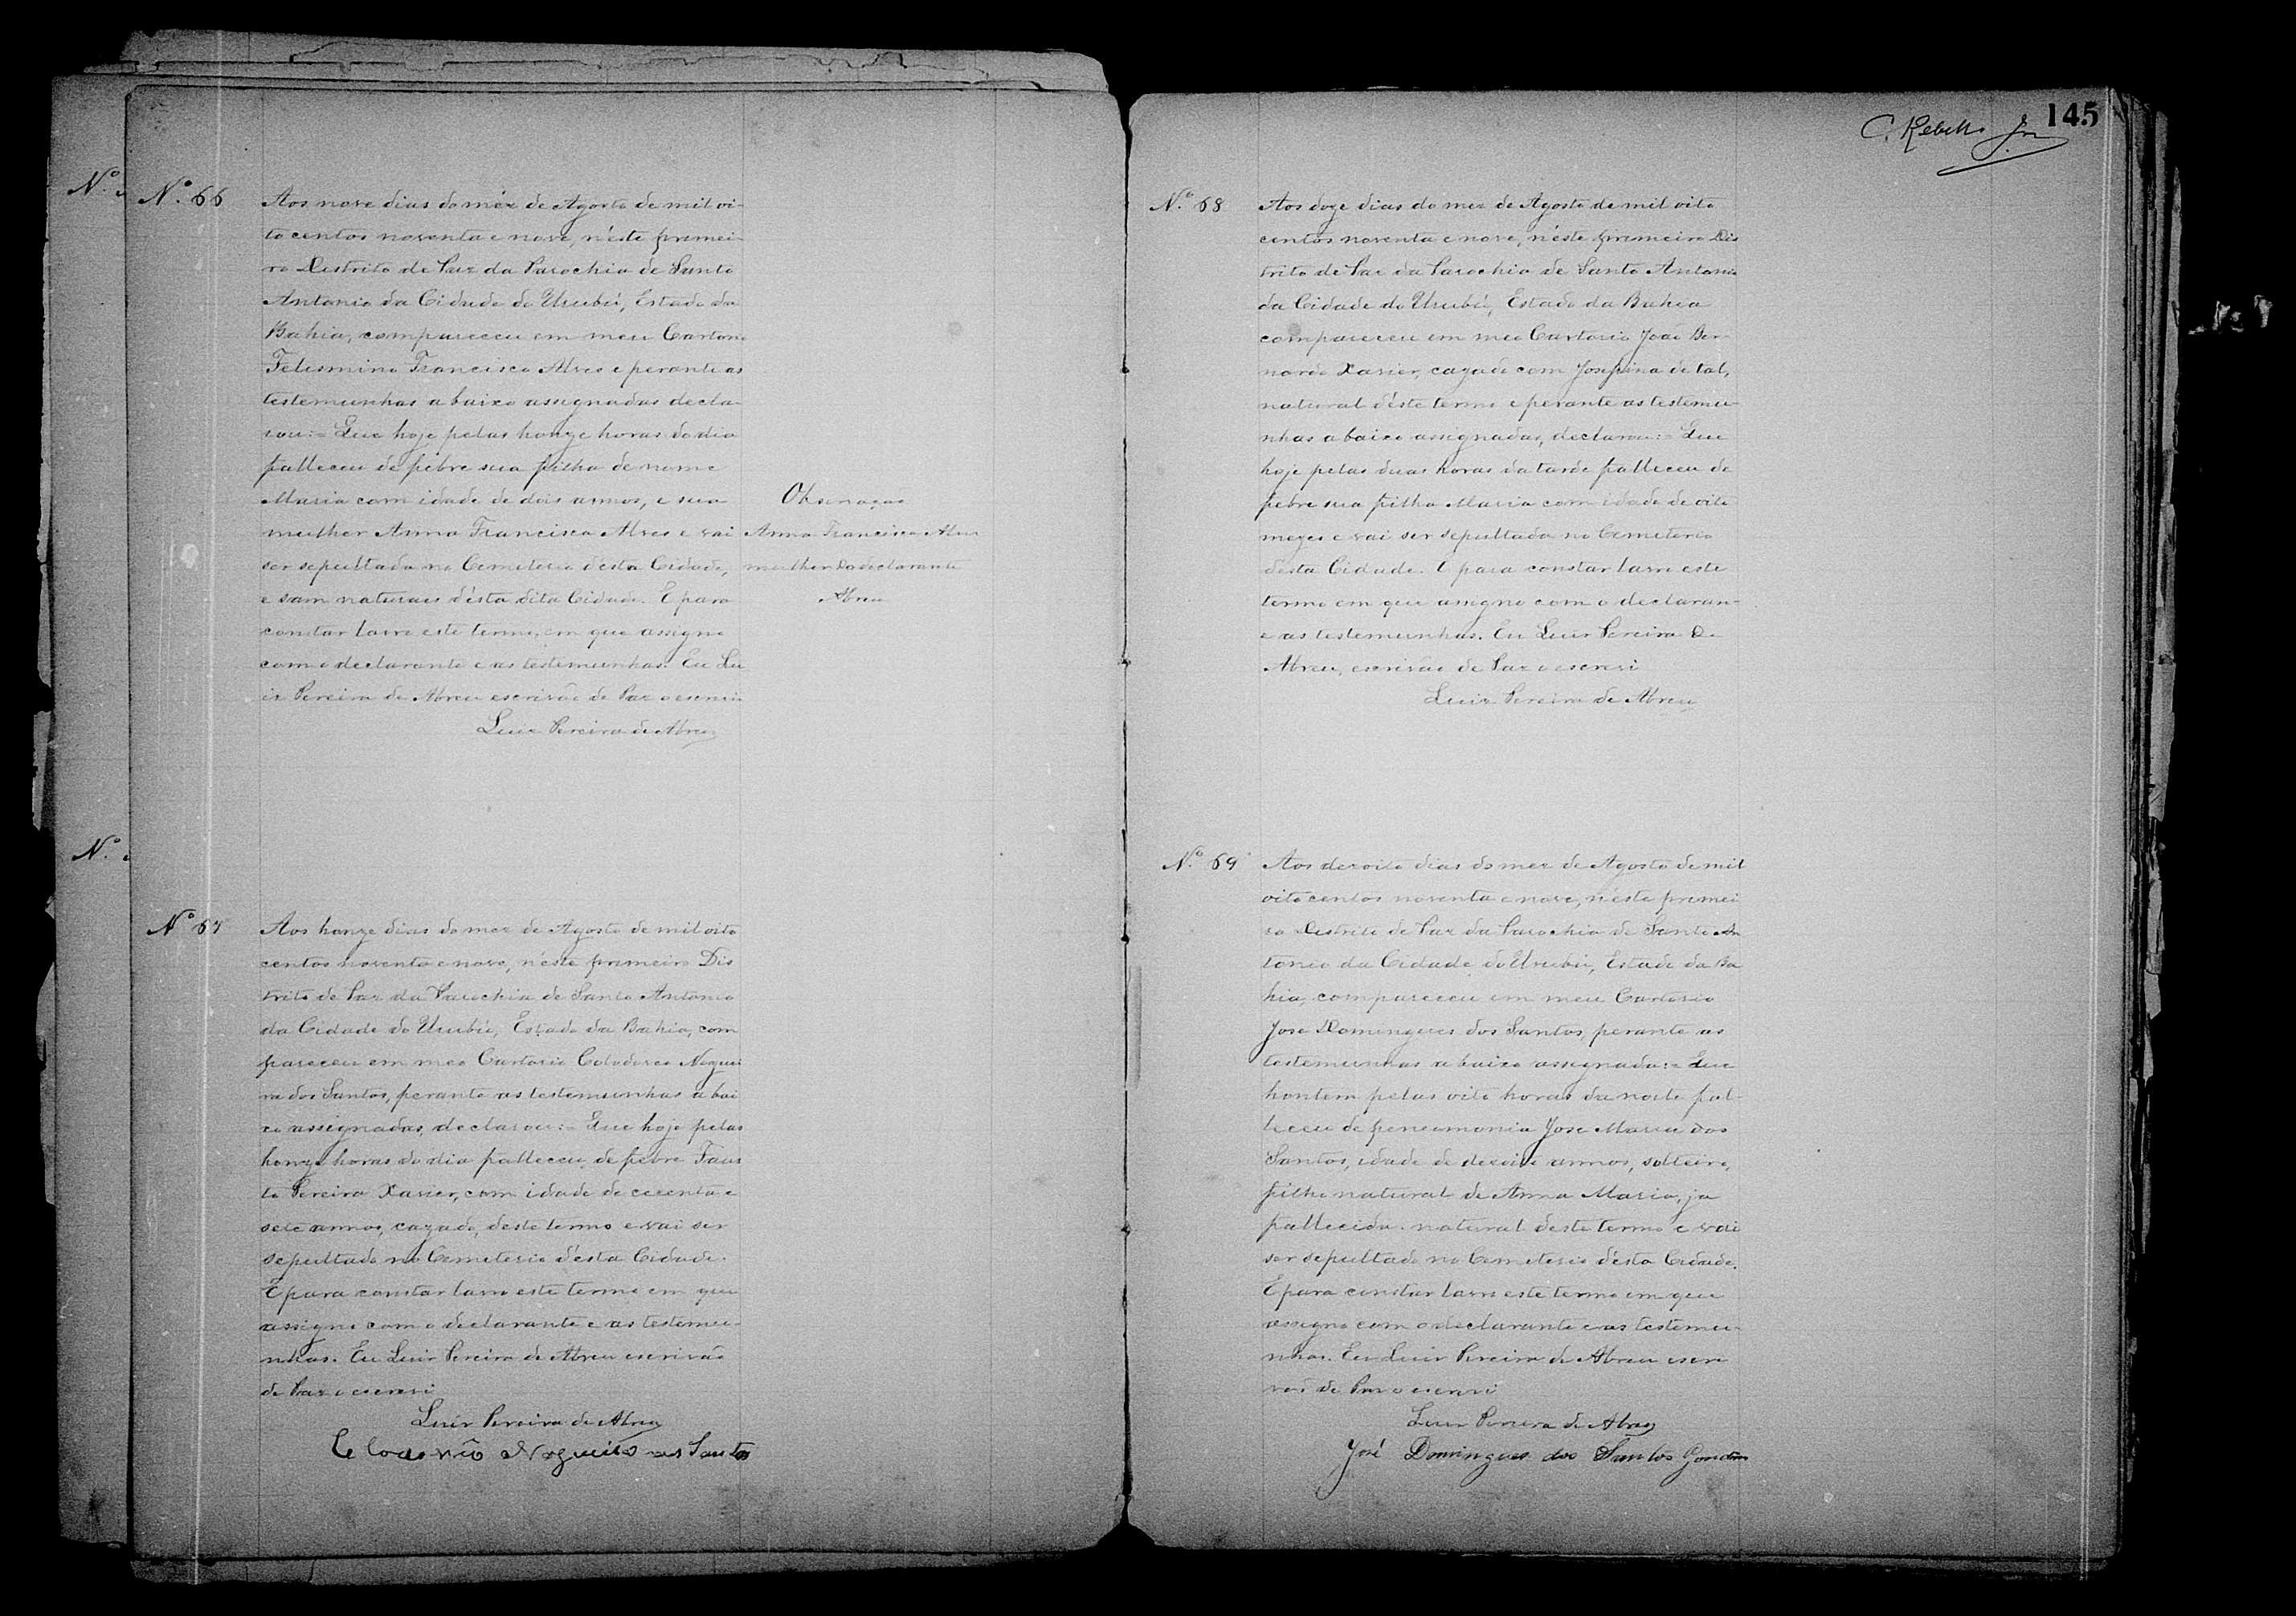 Nº 66
Aos nove dias do mêz de Agosto de mil oi-
to centos noventa e nove, n'éste primei-
ro Destrito de Paz da Parochia de Santo
Antonio da Cidade do Urubú, Estado da
Bahia, compareceu em meu Cartorio
Felismino Francisco Alves e perante as
testemunhas abaixo assignadas decla-
rou:= Que hoje pelas honze horas do dia
falleceu de febre sua filha de nome
Maria com idade de dois annos, e sua
mulher Anna Francisca Alves e vai
ser sepultada no Cemeterio désta Cidade,
e sam naturaes désta dita Cidade. E para
constar lavro este termo, em que assigno
com o declarante e as testemunhas. Eu Lu
iz Pereira de Abreu escrivão de Paz o escrevi
Luiz Pereira de Abreu
Observação
Anna Francisca Alves
mulher do declarante
Abreu
Nº 67
Aos honze dias do mez de Agosto de mil oito
centos noventa e nove, n'éste primeiro Dis
trito de Paz da Parochia de Santo Antonio
da Cidade do Urubú, Estado da Bahia, com
pareceu em meo Cartorio Colodoveo Noguei
ra dos Santos, perante as testemunhas abai
xo assignadas, declarou:= Que hoje pelas
honze horas do dia falleceu de febre Faus
to Pereira Xavier, com idade de cecenta e
sete annos, cazado, deste termo e vai ser
sepultado no Cemeterio désta Cidade.
E para constar lavro este termo em que
assigno com o declarante e as testemu-
nhas. Eu Luiz Pereira de Abreu escrivão
de Paz o escrevi
Luiz Pereira de Abreu
Nogueira dos Santos
145
C. Rebello Jor
Nº 68
Aos doze dias do mez de Agosto de mil oito
centos noventa e nove, n'éste primeiro Dis
trito de Paz da Parochia de Santo Antonio
da Cidade do Urubú, Estado da Bahia
compareceu em meo Cartorio João Ber
nardo Xavier, cazado com Josephina de tal,
natural déste termo e perante as testemu-
nhas abaixo assignadas, declarou:= Que
hoje pelas duas horas da tarde falleceu de
febre sua filha Maria com idade de oito
mezes e vai ser sepultada no Cemeterio
désta Cidade. E para constar lavro este
termo em que assigno com o declaran-
e as testemunhas. Eu Luiz Pereira de
Abreu, escrivão de Paz o escrevi
Luiz Pereira de Abreu
Nº 69
Aos dezoito dias do mez de Agosto de mil
oito centos noventa e nove, n'éste primei
ro Destrito de Paz da Parochia de Santo An
tonio da Cidade do Urubú, Estado da Ba
hia, compareceu em meu Cartorio
Jose Domingues dos Santos, perante as
testemunhas abaixo assignada:= Que
hontem pelas oito horas da noite fal-
leceu de peneumonia Jose Maria dos
Santos, idade de dezoito annos, solteiro,
filho natural de Anna Maria, ja
fallecida. natural deste termo e vai
ser sepultado no Cemeterio désta Cidade.
E para constar lavro este termo em que
assigno com o declarante e as testemu-
nhas. Eu Luiz Pereira de Abreu escri
vão de Paz o escrevi
Luiz Pereira de Abreu
José Domingues dos Santos